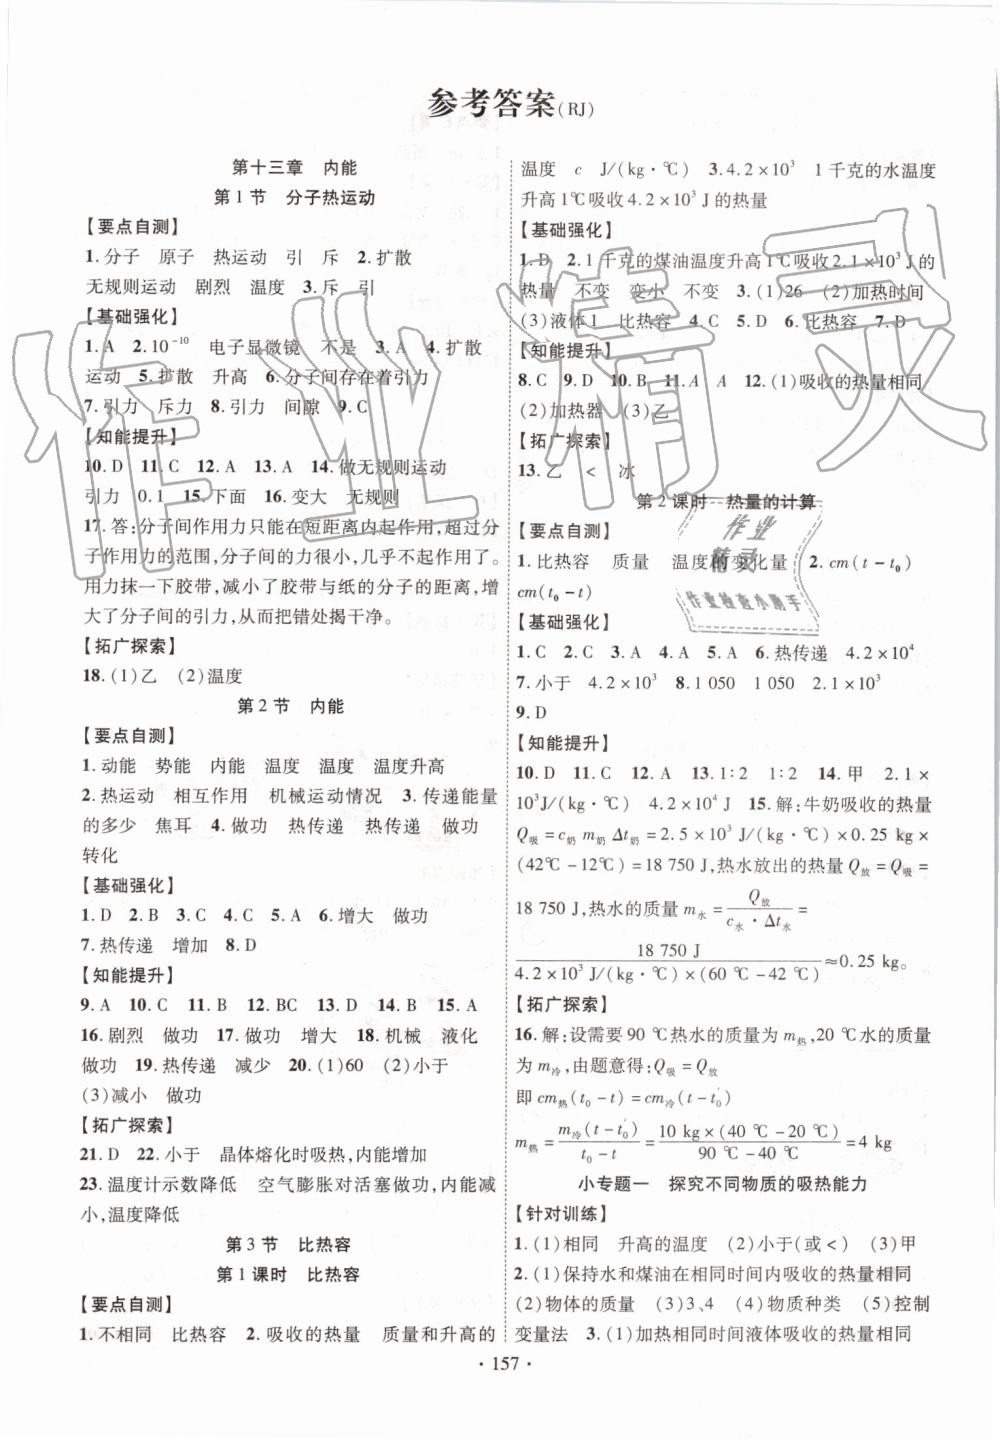 参考答案(RJ)
第十三章 内能
第1节 分子热运动
【要点自测】
1.分子 原子 热运动 引 斥 2.扩散
无规则运动 剧烈 温度 3.斥 引
【基础强化】
1.A 2.10⁻¹⁰ 电子显微镜 不是 3.A 4.扩散
运动 5.扩散 升高 6.分子间存在着引力
7.引力 斥力 8.引力 间隙 9.C
【知能提升】
10.D 11.C 12.A 13.A 14.做无规则运动
引力 0.1 15.下面 16.变大 无规则
17.答:分子间作用力只能在短距离内起作用,超过分
子作用力的范围,分子间的力很小,几乎不起作用了。
用力抹一下胶带,减小了胶带与纸的分子的距离,增
大了分子间的引力,从而把错处揭干净。
【拓广探索】
18.(1)乙 (2)温度
第2节 内能
【要点自测】
1.动能 势能 内能 温度 温度 温度升高
2.热运动 相互作用 机械运动情况 3.传递能量
的多少 焦耳 4.做功 热传递 热传递 做功
转化
【基础强化】
1.D 2.B 3.C 4.C 5.A 6.增大 做功
7.热传递 增加 8.D
【知能提升】
9.A 10.C 11.B 12.BC 13.D 14.B 15.A
16.剧烈 做功 17.做功 增大 18.机械 液化
做功 19.热传递 减少 20.(1)60 (2)小于
(3)减小 做功
【拓广探索】
21.D 22.小于 晶体熔化时吸热,内能增加
23.温度计示数降低 空气膨胀对活塞做功,内能减
小,温度降低
第3节 比热容
第1课时 比热容
【要点自测】
1.不相同 比热容 2.吸收的热量 质量和升高的
温度 c J/(kg·℃) 3.4.2×10³ 1千克的水温度
升高1℃吸收4.2×10³J的热量
【基础强化】
1.D 2.1千克的煤油温度升高1℃吸收2.1×10³J的
热量 不变 变小 不变 3.(1)26 (2)加热时间
(3)液体1 比热容 4.C 5.D 6.比热容 7.D
【知能提升】
8.C 9.D 10.B 11.A A 12.(1)吸收的热量相同
(2)加热器 (3)乙
【拓广探索】
13.乙 < 冰
第2课时 热量的计算
【要点自测】
1.比热容 质量 温度的变化量 2.cm(t−t₀)
cm(t₀−t)
【基础强化】
1.C 2.C 3.A 4.A 5.A 6.热传递 4.2×10⁴
7.小于 4.2×10³ 8.1 050 1 050 2.1×10³
9.D
【知能提升】
10.D 11.C 12.A 13.1∶2 1∶2 14.甲 2.1×
10³J/(kg·℃) 4.2×10³J 15.解:牛奶吸收的热量
Q吸=c奶 m奶 Δt奶=2.5×10³ J/(kg·℃)×0.25 kg×
(42℃−12℃)=18 750 J,热水放出的热量 Q放=Q吸=
18 750 J,热水的质量 m水=Q放/(c水·Δt水)=
18 750 J/(4.2×10³ J/(kg·℃)×(60 ℃−42 ℃))≈0.25 kg。
【拓广探索】
16.解:设需要90 ℃热水的质量为 m热,20 ℃水的质量
为 m冷,由题意得:Q吸=Q放
即 cm热(t₀−t)=cm冷(t−t₀′)
m热=m冷(t−t₀′)/(t₀−t)=10 kg×(40 ℃−20 ℃)/(90 ℃−40 ℃)=4 kg
小专题一 探究不同物质的吸热能力
【针对训练】
1.(1)相同 升高的温度 (2)小于(或<) (3)甲
2.(1)保持水和煤油在相同时间内吸收的热量相同
(2)物体的质量 (3)3、4 (4)物质种类 (5)控制
变量法 3.(1)加热相同时间液体吸收的热量相同
·157·
作业精灵
作业
精灵
作业检查小助手